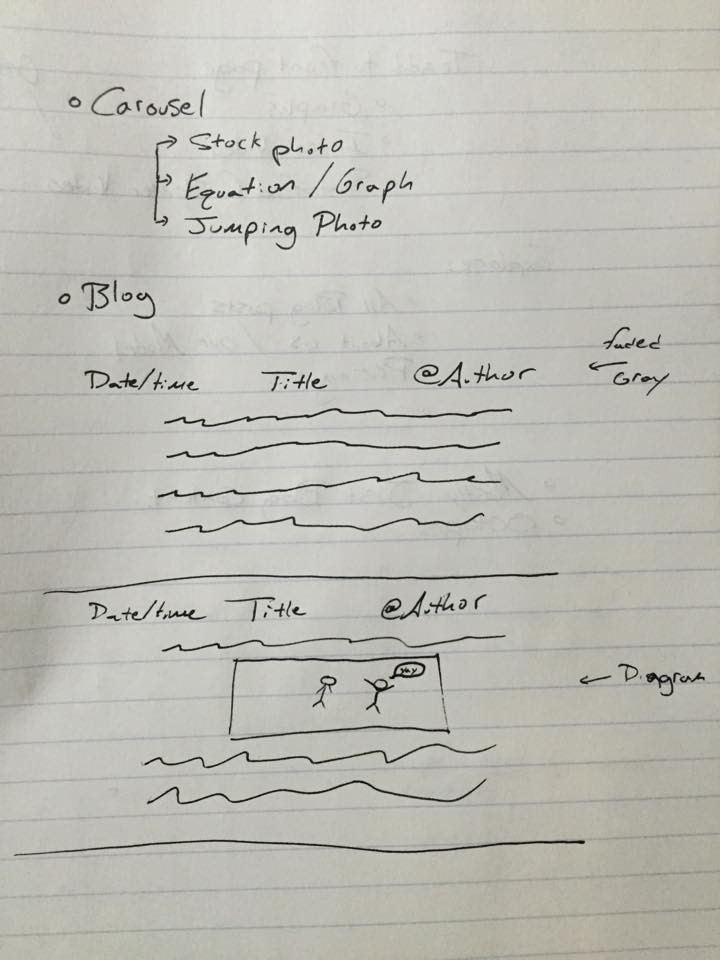 Carousel
Stock photo
Equation / Graph
Jumping Photo
Blog
faded
Date/time Title @Author
Gray
Date/time Title @Author
yay
Diagram